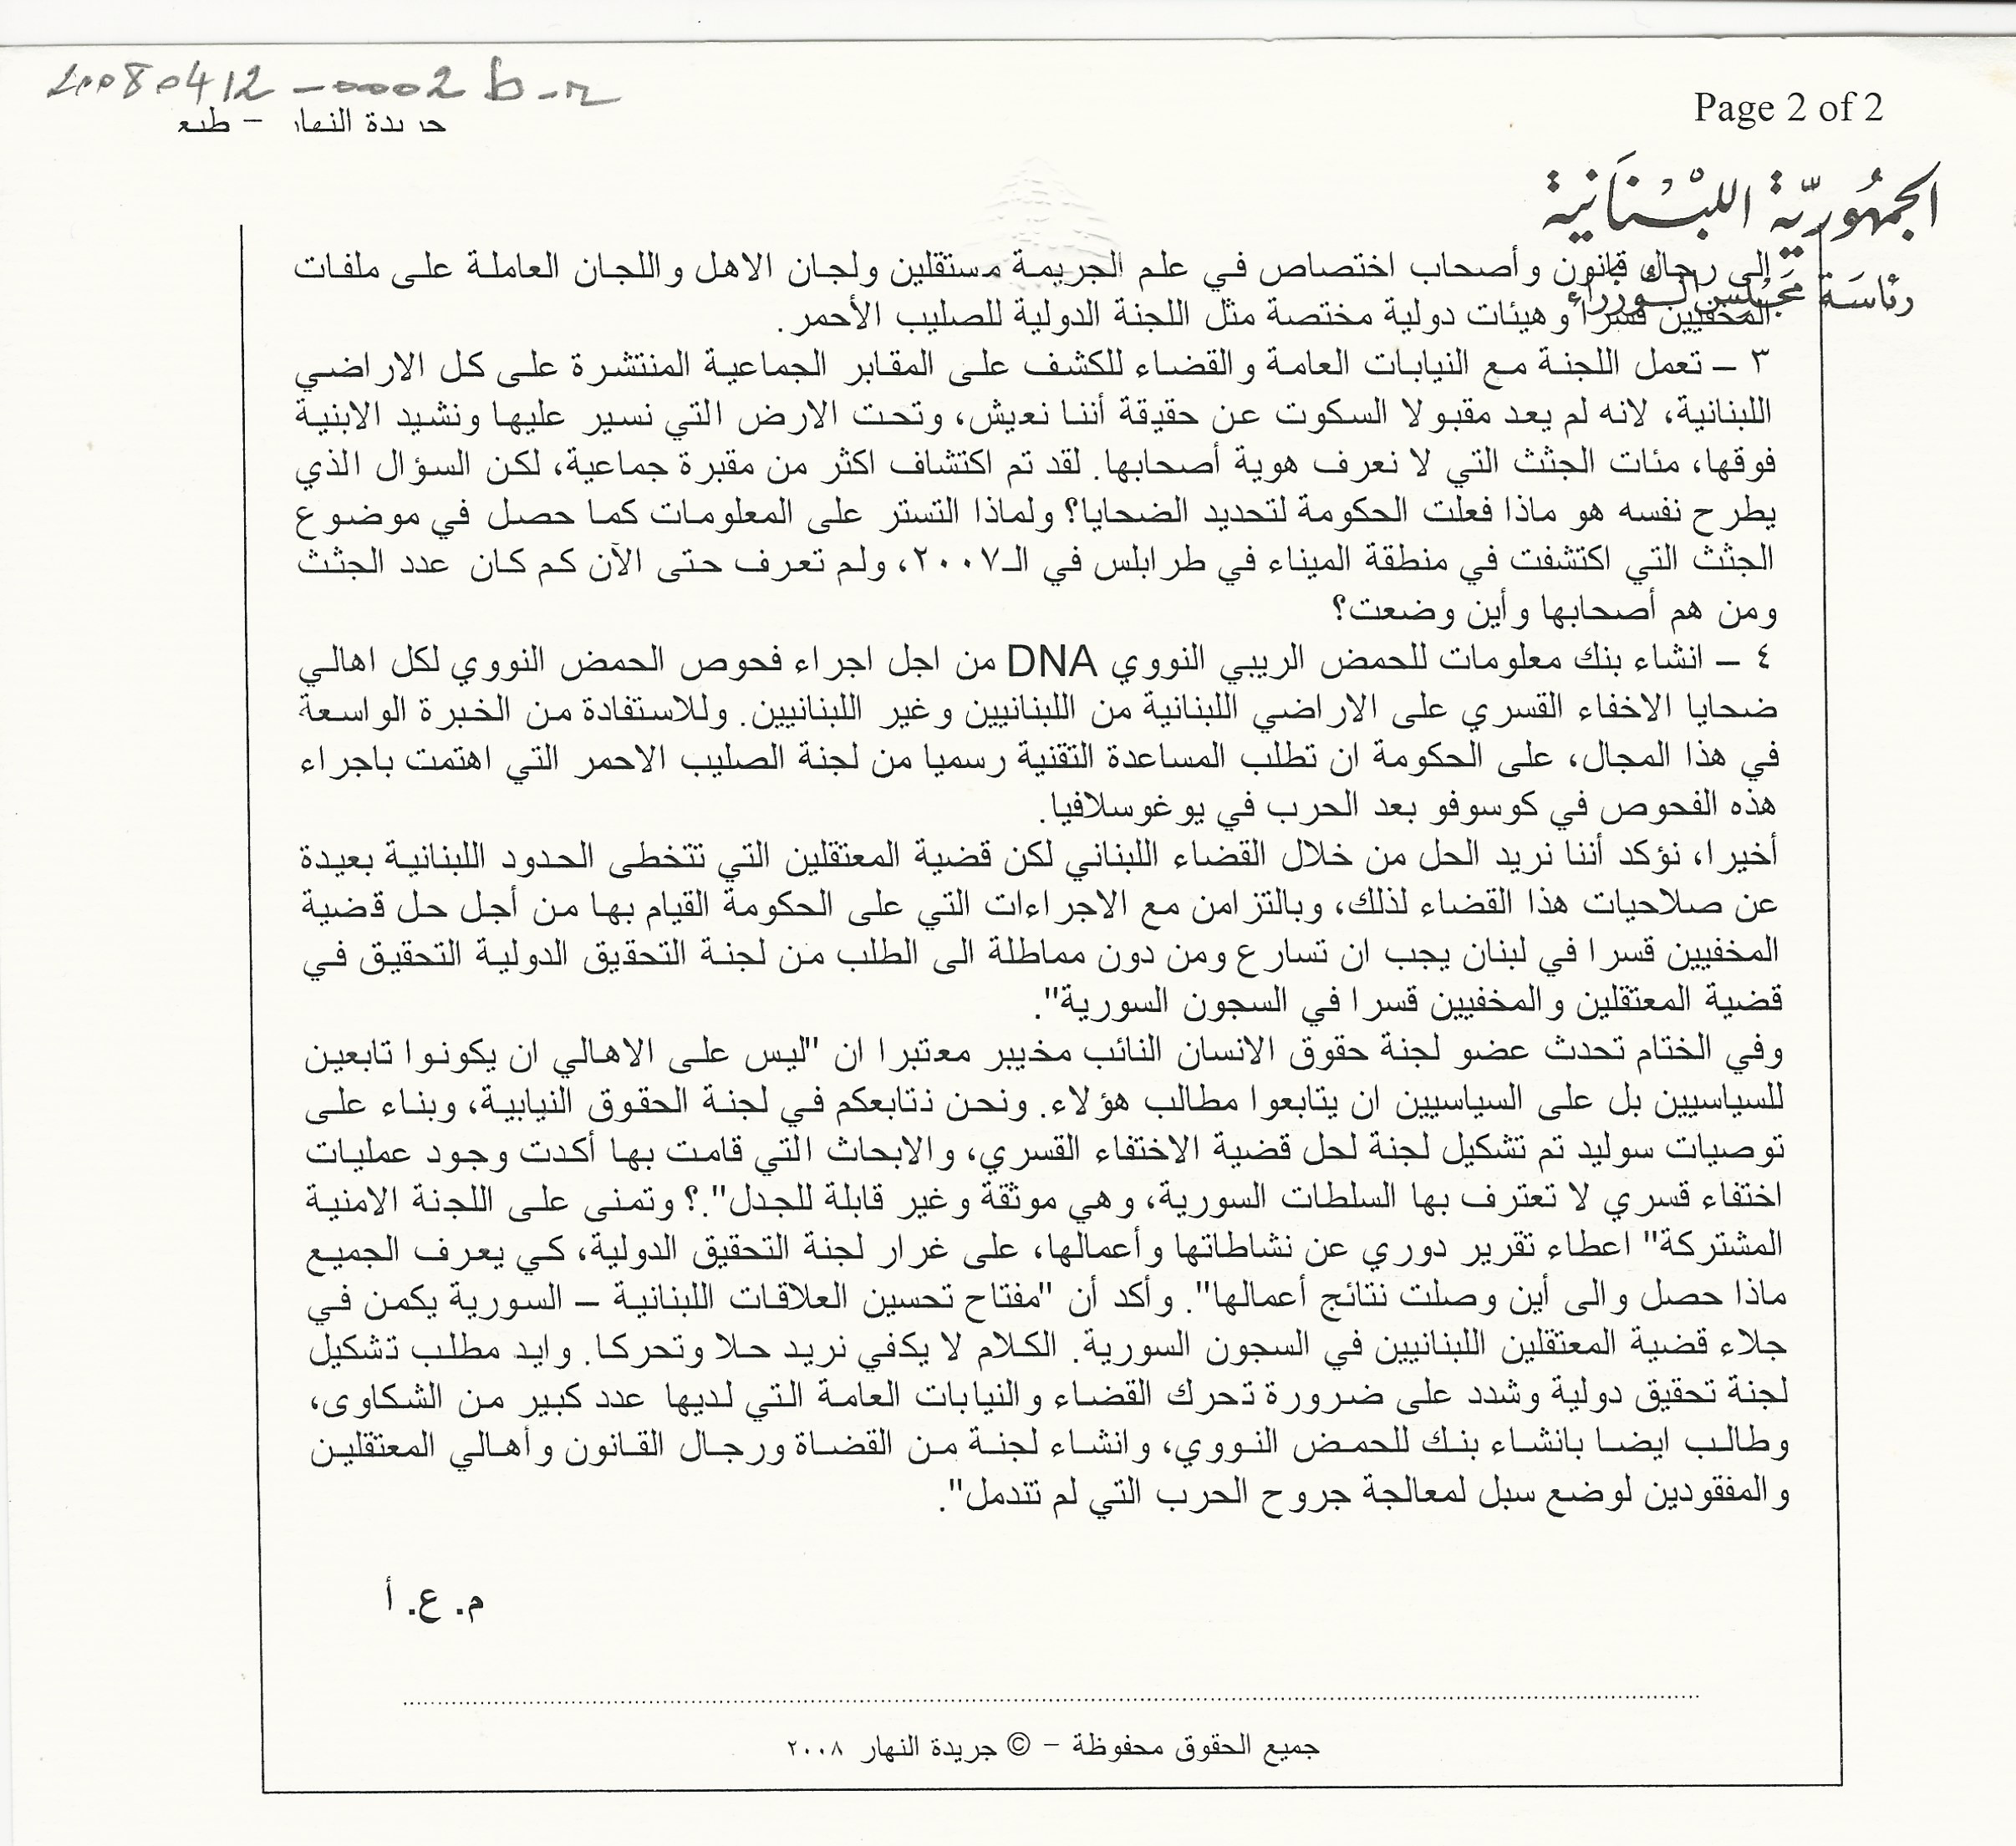 20080412-0002b-r
Page 2 of 2
جريدة النهار - طبع
الجمهورية اللبنانية
رئاسة مجلس الوزراء
إلى رجال قانون وأصحاب اختصاص في علم الجريمة مستقلين ولجان الاهل واللجان العاملة على ملفات
المخفيين قسرا وهيئات دولية مختصة مثل اللجنة الدولية للصليب الأحمر.
٣ – تعمل اللجنة مع النيابات العامة والقضاء للكشف على المقابر الجماعية المنتشرة على كل الاراضي
اللبنانية، لانه لم يعد مقبولا السكوت عن حقيقة أننا نعيش، وتحت الارض التي نسير عليها ونشيد الابنية
فوقها، مئات الجثث التي لا نعرف هوية أصحابها. لقد تم اكتشاف اكثر من مقبرة جماعية، لكن السؤال الذي
يطرح نفسه هو ماذا فعلت الحكومة لتحديد الضحايا؟ ولماذا التستر على المعلومات كما حصل في موضوع
الجثث التي اكتشفت في منطقة الميناء في طرابلس في الـ٢٠٠٧، ولم تعرف حتى الآن كم كان عدد الجثث
ومن هم أصحابها وأين وضعت؟
٤ – انشاء بنك معلومات للحمض الريبي النووي DNA من اجل اجراء فحوص الحمض النووي لكل اهالي
ضحايا الاخفاء القسري على الاراضي اللبنانية من اللبنانيين وغير اللبنانيين. وللاستفادة من الخبرة الواسعة
في هذا المجال، على الحكومة ان تطلب المساعدة التقنية رسميا من لجنة الصليب الاحمر التي اهتمت باجراء
هذه الفحوص في كوسوفو بعد الحرب في يوغوسلافيا.
أخيرا، نؤكد أننا نريد الحل من خلال القضاء اللبناني لكن قضية المعتقلين التي تتخطى الحدود اللبنانية بعيدة
عن صلاحيات هذا القضاء لذلك، وبالتزامن مع الاجراءات التي على الحكومة القيام بها من أجل حل قضية
المخفيين قسرا في لبنان يجب ان تسارع ومن دون مماطلة الى الطلب من لجنة التحقيق الدولية التحقيق في
قضية المعتقلين والمخفيين قسرا في السجون السورية".
وفي الختام تحدث عضو لجنة حقوق الانسان النائب مخيبر معتبرا ان "ليس على الاهالي ان يكونوا تابعين
للسياسيين بل على السياسيين ان يتابعوا مطالب هؤلاء. ونحن نتابعكم في لجنة الحقوق النيابية، وبناء على
توصيات سوليد تم تشكيل لجنة لحل قضية الاختفاء القسري، والابحاث التي قامت بها أكدت وجود عمليات
اختفاء قسري لا تعترف بها السلطات السورية، وهي موثقة وغير قابلة للجدل".؟ وتمنى على اللجنة الامنية
المشتركة" اعطاء تقرير دوري عن نشاطاتها وأعمالها، على غرار لجنة التحقيق الدولية، كي يعرف الجميع
ماذا حصل والى أين وصلت نتائج أعمالها". وأكد أن "مفتاح تحسين العلاقات اللبنانية – السورية يكمن في
جلاء قضية المعتقلين اللبنانيين في السجون السورية. الكلام لا يكفي نريد حلا وتحركا. وايد مطلب تشكيل
لجنة تحقيق دولية وشدد على ضرورة تحرك القضاء والنيابات العامة التي لديها عدد كبير من الشكاوى،
وطالب ايضا بانشاء بنك للحمض النووي، وانشاء لجنة من القضاة ورجال القانون وأهالي المعتقلين
والمفقودين لوضع سبل لمعالجة جروح الحرب التي لم تندمل".
م. ع. أ
جميع الحقوق محفوظة - © جريدة النهار ٢٠٠٨